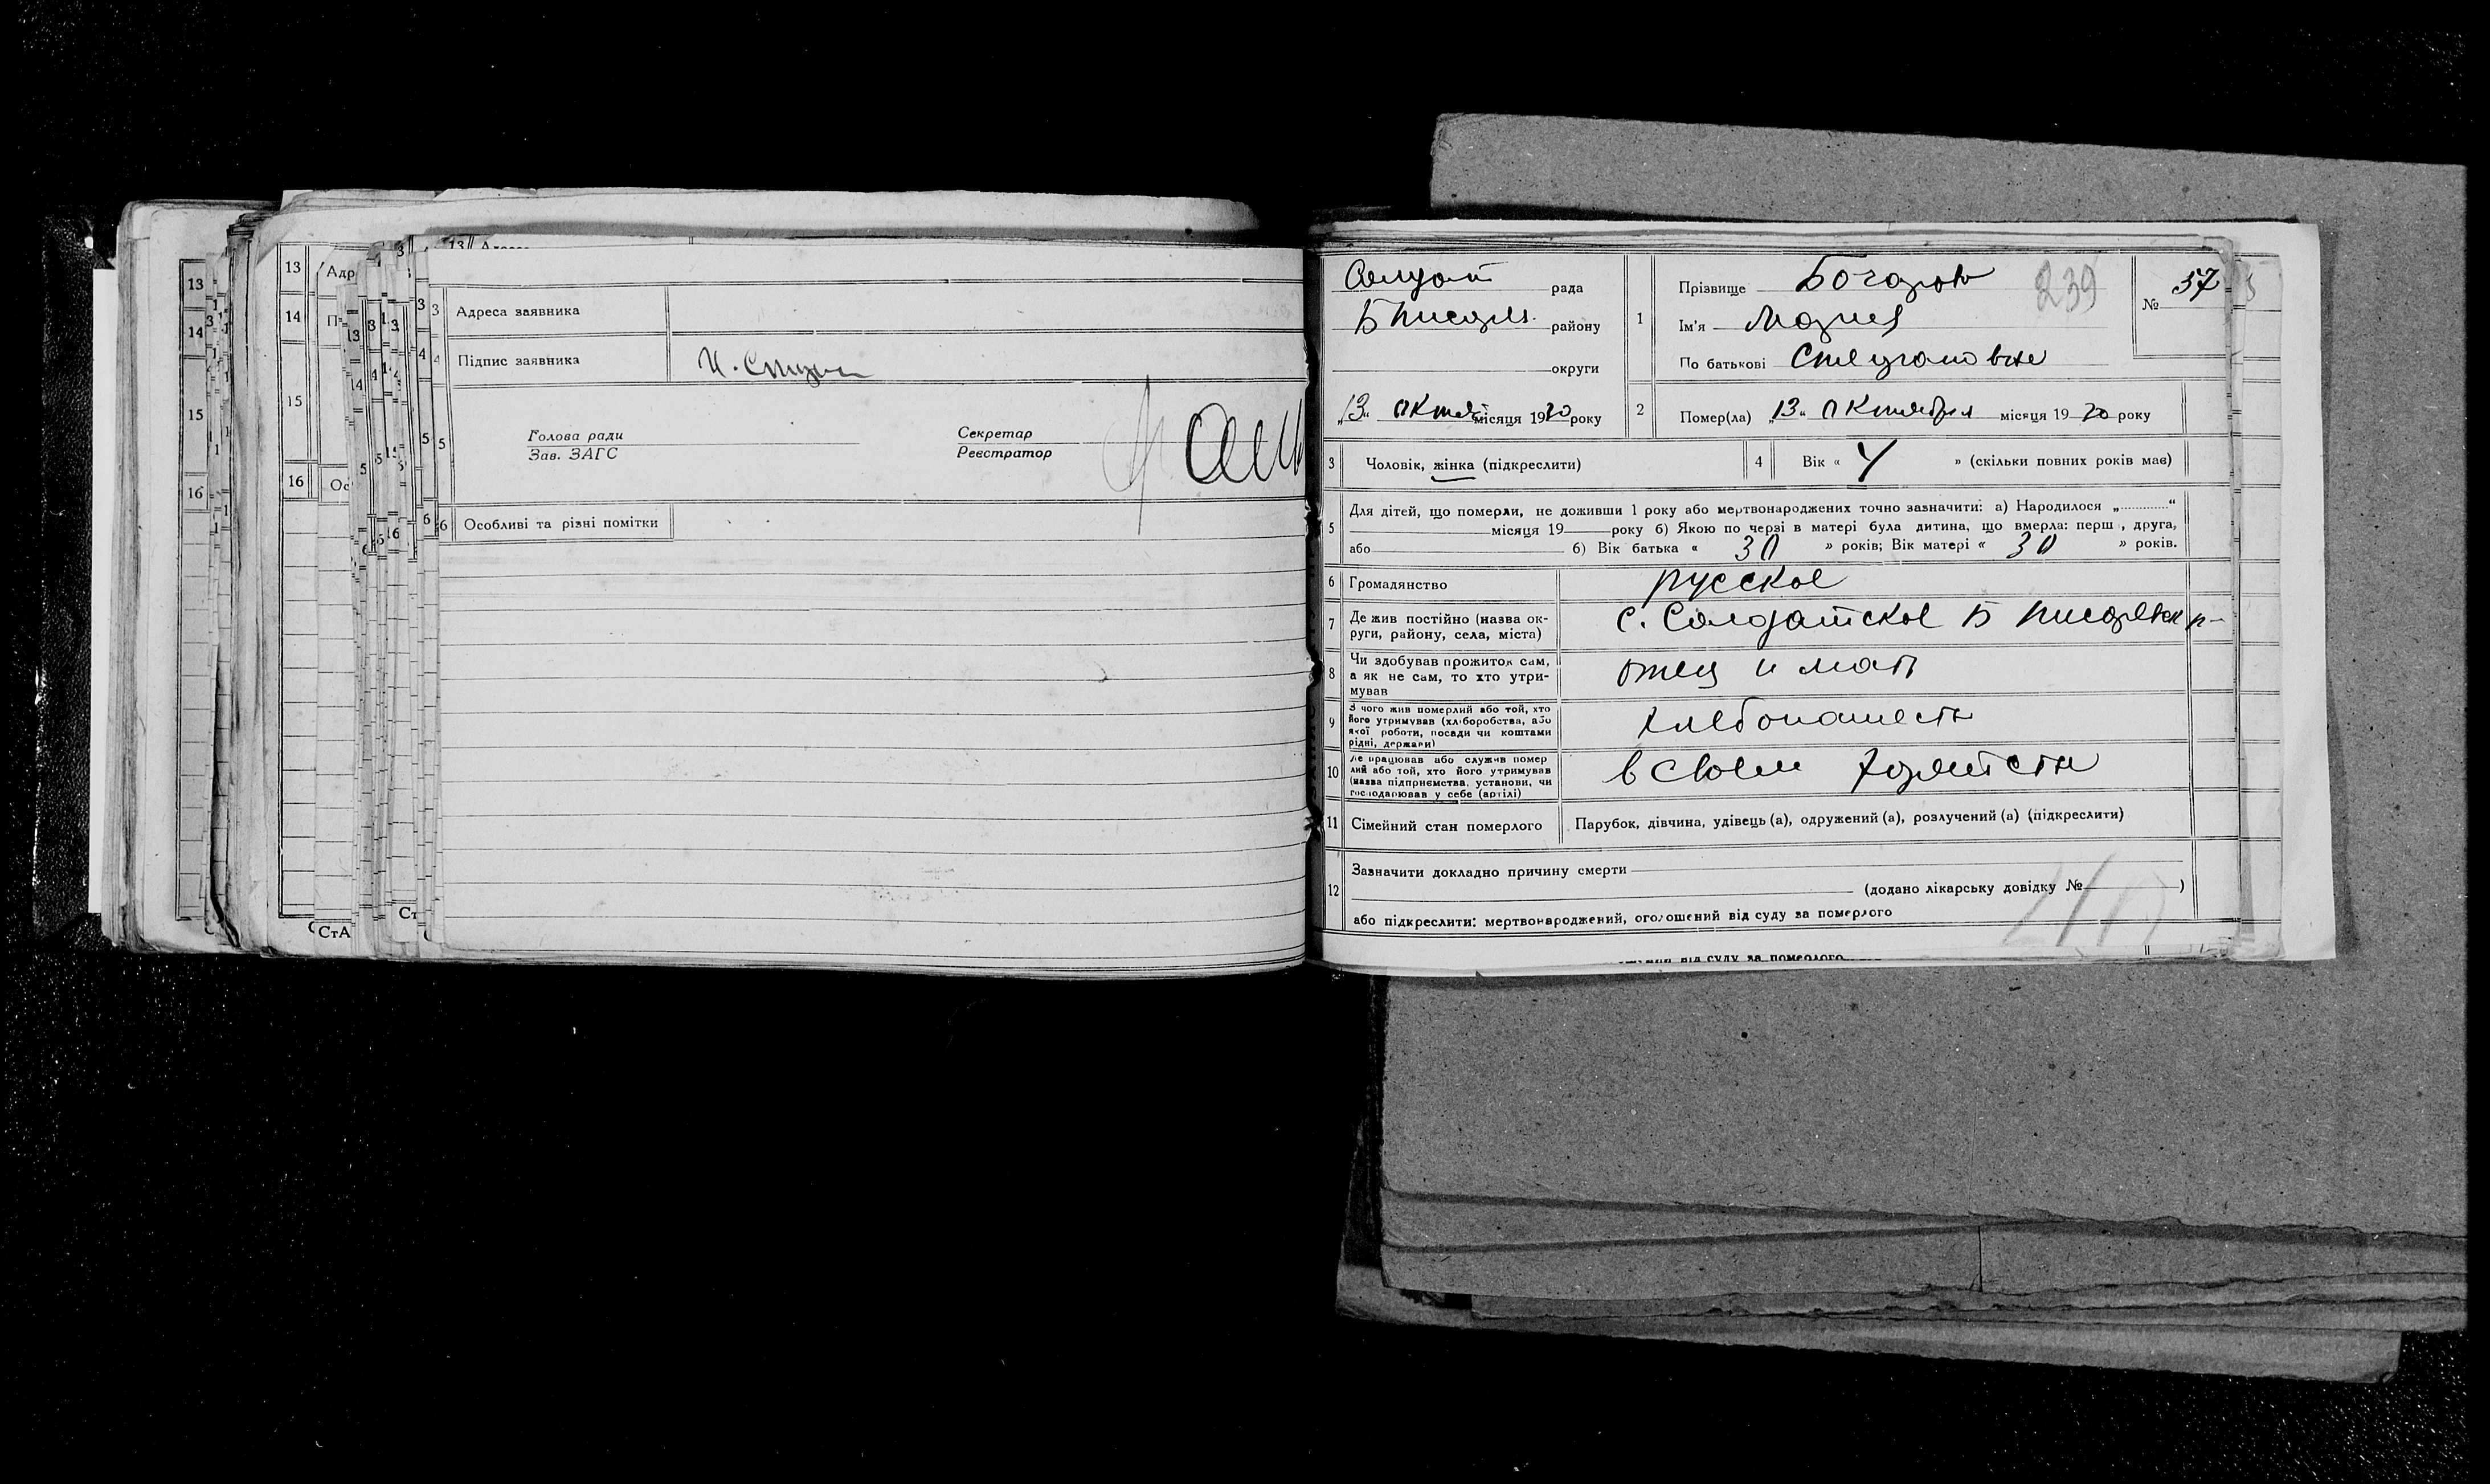 13
14
15
16
13
14
15
16
Адр
Адреса заявника
Підпис заявника
Голова ради
Зав. ЗАГС
Секретар
Реєстратор
Особливі та різні помітки
рада
Б Писар. району
округи
„13“ октяб місяця 1920 року
1
Прізвище
239
Ім'я Мария
По батькові Степановна
№ 57
2 Помер(ла) „13“ октября місяця 1920 року
3 Чоловік, жінка (підкреслити)
4 Вік « 4 » (скільки повних років має)
5 Для дітей, що померли, не доживши 1 року або мертвонароджених точно зазначити: а) Народилося „............“
місяця 19 року б) Якою по черзі в матері була дитина, що вмерла: перш , друга,
або б) Вік батька « 30 » років; Вік матері « 30 » років.
6 Громадянство русское
7 Де жив постійно (назва ок-
руги, району, села, міста)
с. Солдатское Б Писаревск р-
8 Чи здобував прожиток сам,
а як не сам, то хто утри-
мував
отец и мать
9 З чого жив померлий або той, хто
його утримував (хліборобства, або
якої роботи, посади чи коштами
рідні, держави)
хлебопашест
10 Де працював або служив помер
лий або той, хто його утримував
(назва підприємства, установи, чи
господарював у себе (артілі)
в своем
11 Сімейний стан померлого
Парубок, дівчина, удівець (а), одружений (а), розлучений (а) (підкреслити)
12 Зазначити докладно причину смерти
(додано лікарську довідку № )
або підкреслити: мертвонароджений, оголошений від суду за померлого
від суду за померлого